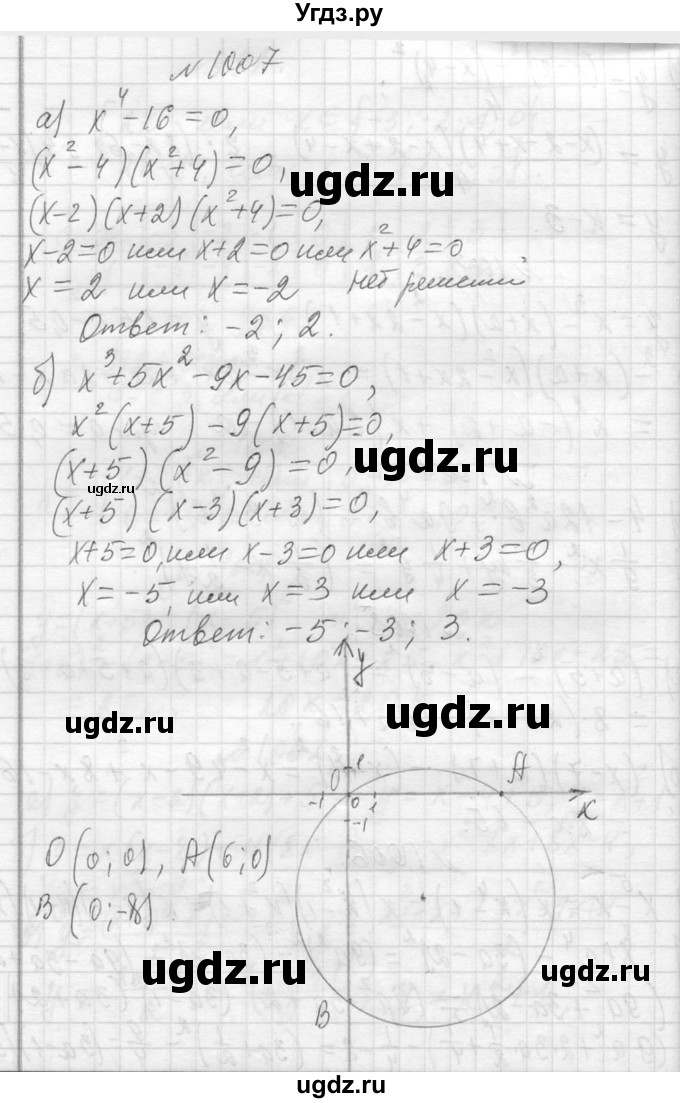 Угдз.ру
№1007
а) x⁴-16=0,
(x²-4)(x²+4)=0,
ugdz.ru
(x-2)(x+2)(x²+4)=0,
x-2=0 или x+2=0 или x²+4=0
x=2 или x=-2 нет решений.
Ответ: -2; 2.
б) x³+5x²-9x-45=0,
x²(x+5)-9(x+5)=0,
(x+5)(x²-9)=0,
ugdz.ru
ugdz.ru
(x+5)(x-3)(x+3)=0,
x+5=0, или x-3=0 или x+3=0,
x=-5, или x=3 или x=-3
Ответ: -5; -3; 3.
y
ugdz.ru
ugdz.ru
0 1 A
-1 0 1 x
-1
O(0;0), A(6;0)
B(0;-8)
ugdz.ru
ugdz.ru
B
ugdz.ru